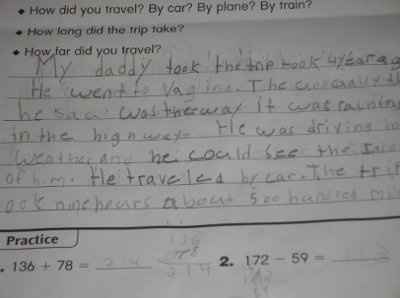 ◆ How did you travel? By car? By plane? By train?
◆ How long did the trip take?
◆ How far did you travel?
My daddy took the trip took 4 year ag
He went to Vagina. The
he saw was the way it was raining
in the highway. He was driving in
weather and he could see the
of him. He traveled by car. The trip
ook nine hours about 500 hundred mil
Practice
. 136 + 78 = 214
136
78
214
2. 172 − 59 =
172
59